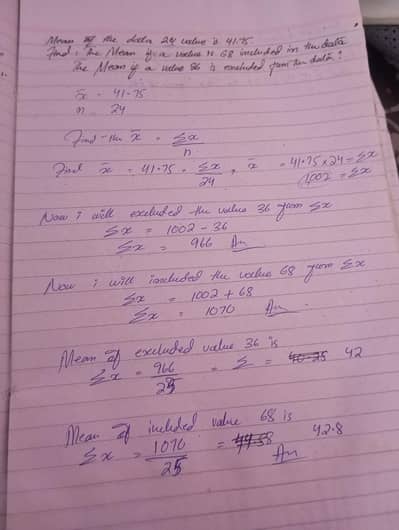 Mean of the data 24 value is 41.75
Find : the Mean if a value is 68 included in the data
The Mean if a value 36 is excluded from the data ?
x̄ = 41.75
n = 24
Find the x̄ = Σx / n
Find x̄ = 41.75 = Σx / 24 , x̄ = 41.75 x 24 = Σx
1002 = Σx
Now i will excluded the value 36 from Σx
Σx = 1002 - 36
Σx = 966 An
Now i will included the value 68 from Σx
Σx = 1002 + 68
Σx = 1070 An
Mean of excluded value 36 is
Σx = 966 / 23 = Σ = 40.25 42
Mean of included value 68 is
Σx = 1070 / 25 = 44.58 42.8
An